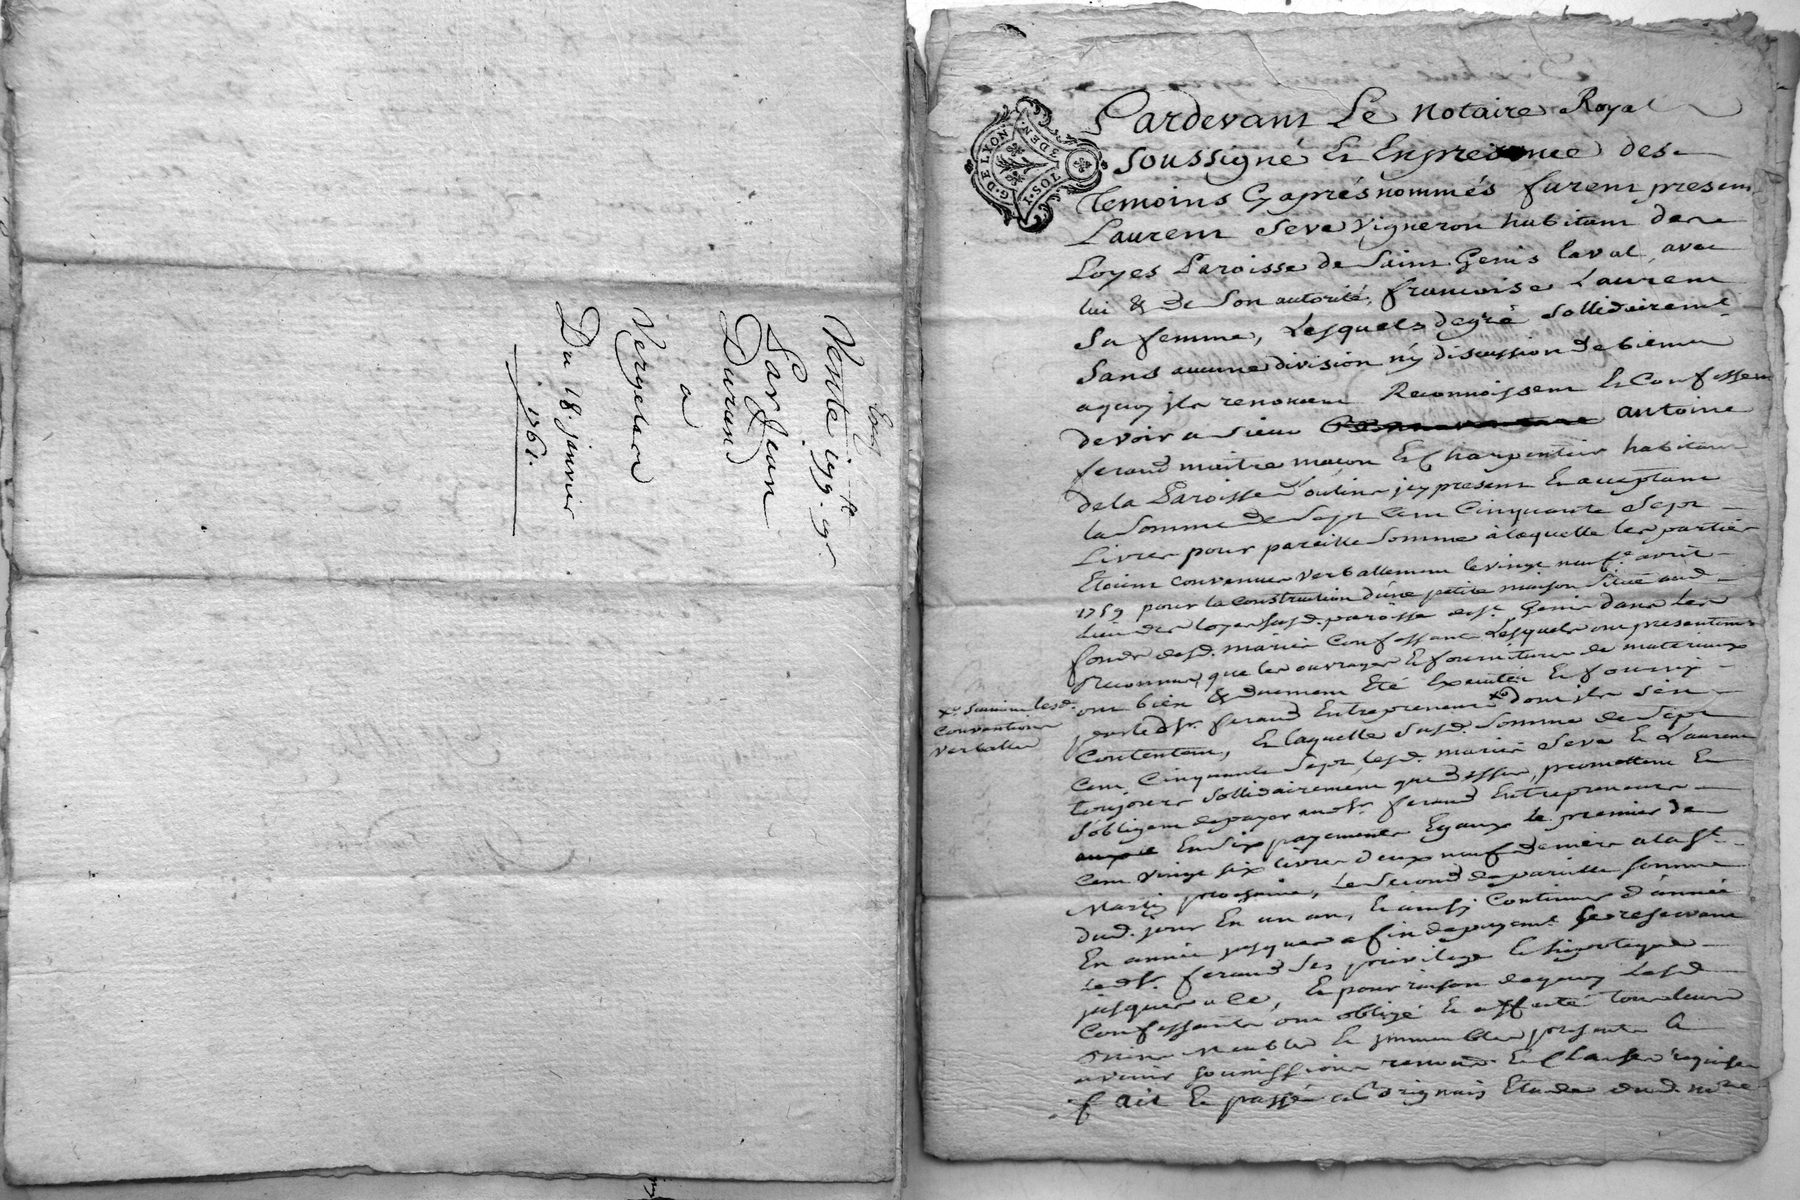 Enreg.
Vente
Par Jean
Durand
a
Vergelas
Du 18. janvier
1761.
G. DE LYON.
1 SOL 3 DEN.
Pardevant Le Notaire Royal
Soussigné Et En presence des
Temoins Cy après nommés furent presens
Laurent Seve vigneron habitant des
Loyes Paroisse de Saint Genis laval, avec
lui & de Son autorité, francoise Laurent
Sa femme, Lesquels de gré sollidairemt
Sans aucune division ny discussion de biens
a quoy ils renoncent Reconnoissent Et Confessent
devoir a Sieur antoine
ferand maitre macon Et Charpentier habitant
de la Paroisse d'oulins icy present Et acceptant
la Somme de Sept Cent Cinquante Sept
Livres pour pareille Somme a laquelle les parties
Etoient convenues verballement le vingt neufe. avril
1759 pour la construction d'une petite maison Situé aud.
lieu des loyes susd. paroisse de St. Genis dans les
fonds desd. mariés Confessants Lesquels ont presentement
Reconnu, que les ouvrages Et fournitures de materiaux
ont bien & duement Eté Executés Et fournis
par led. Sr. ferand Entrepreneur x dont ils S'en
x Suivant lesd.
Conventions
verballes
Contentent, Et laquelle Susd. Somme de Sept
Cent Cinquante Sept, lesd. mariés Seve Et Laurent
toujours Sollidairement que dessus, promettent Et
S'obligent de payer aud. Sr. ferand Entrepreneur
En Six payements Egaux le premier de
Cent vingt six livres deux neuf deniers a la St.
Martin prochaine, Le Second de pareille somme
dud. jour En un an, Et ainsi Continuer d'année
En année jusques a fin de payemt. Se reservant
led. Sr. ferand Ses privilege Et hipoteque
jusques a ce, Et pour raison de quoy Lesd.
Confessants ont obligé Et affecté tous leurs
biens Meubles Et immeubles presents Et
avenir soumissions renond. Et Clauses requises
fait Et passé a Brignais Etude dud. nore